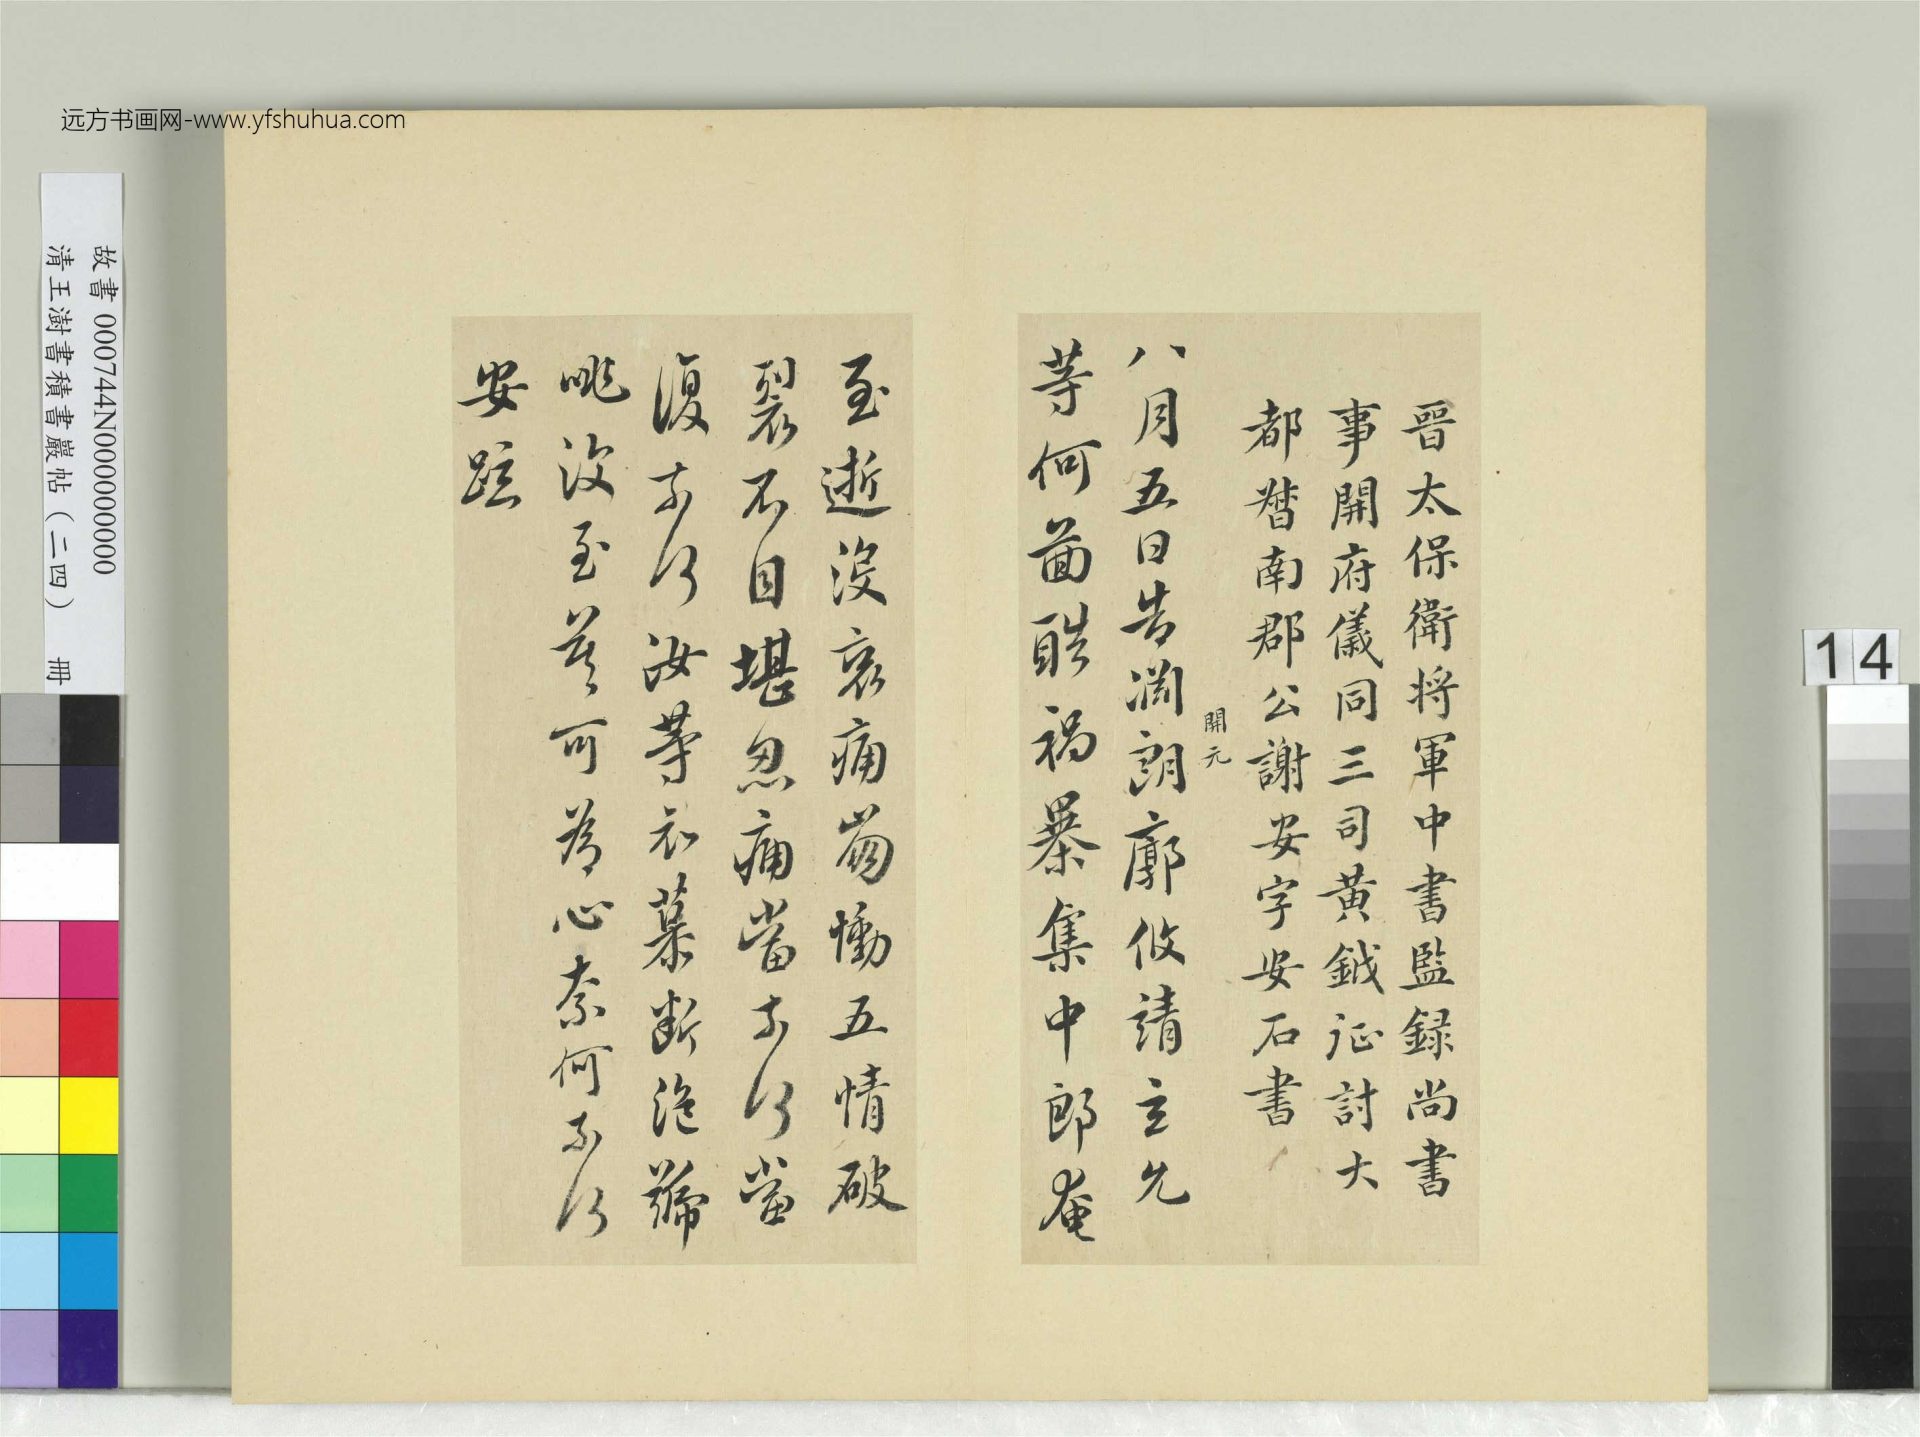 远方书画网-www.yfshuhua.com
故書 000744N000000000
清王澍書積書巖帖（二四） 冊
14
晉太保衛将軍中書監録尚書
事開府儀同三司黄鉞征討大
都督南郡公謝安字安石書
開元
八月五日告淵朗廓攸靖玄允
等何圖酷禍暴集中郎奄
至逝没哀痛崩慟五情破
裂不自堪忍痛當奈何當
復奈何汝等哀慕断絶號
咷深至豈可為心奈何奈何
安疏